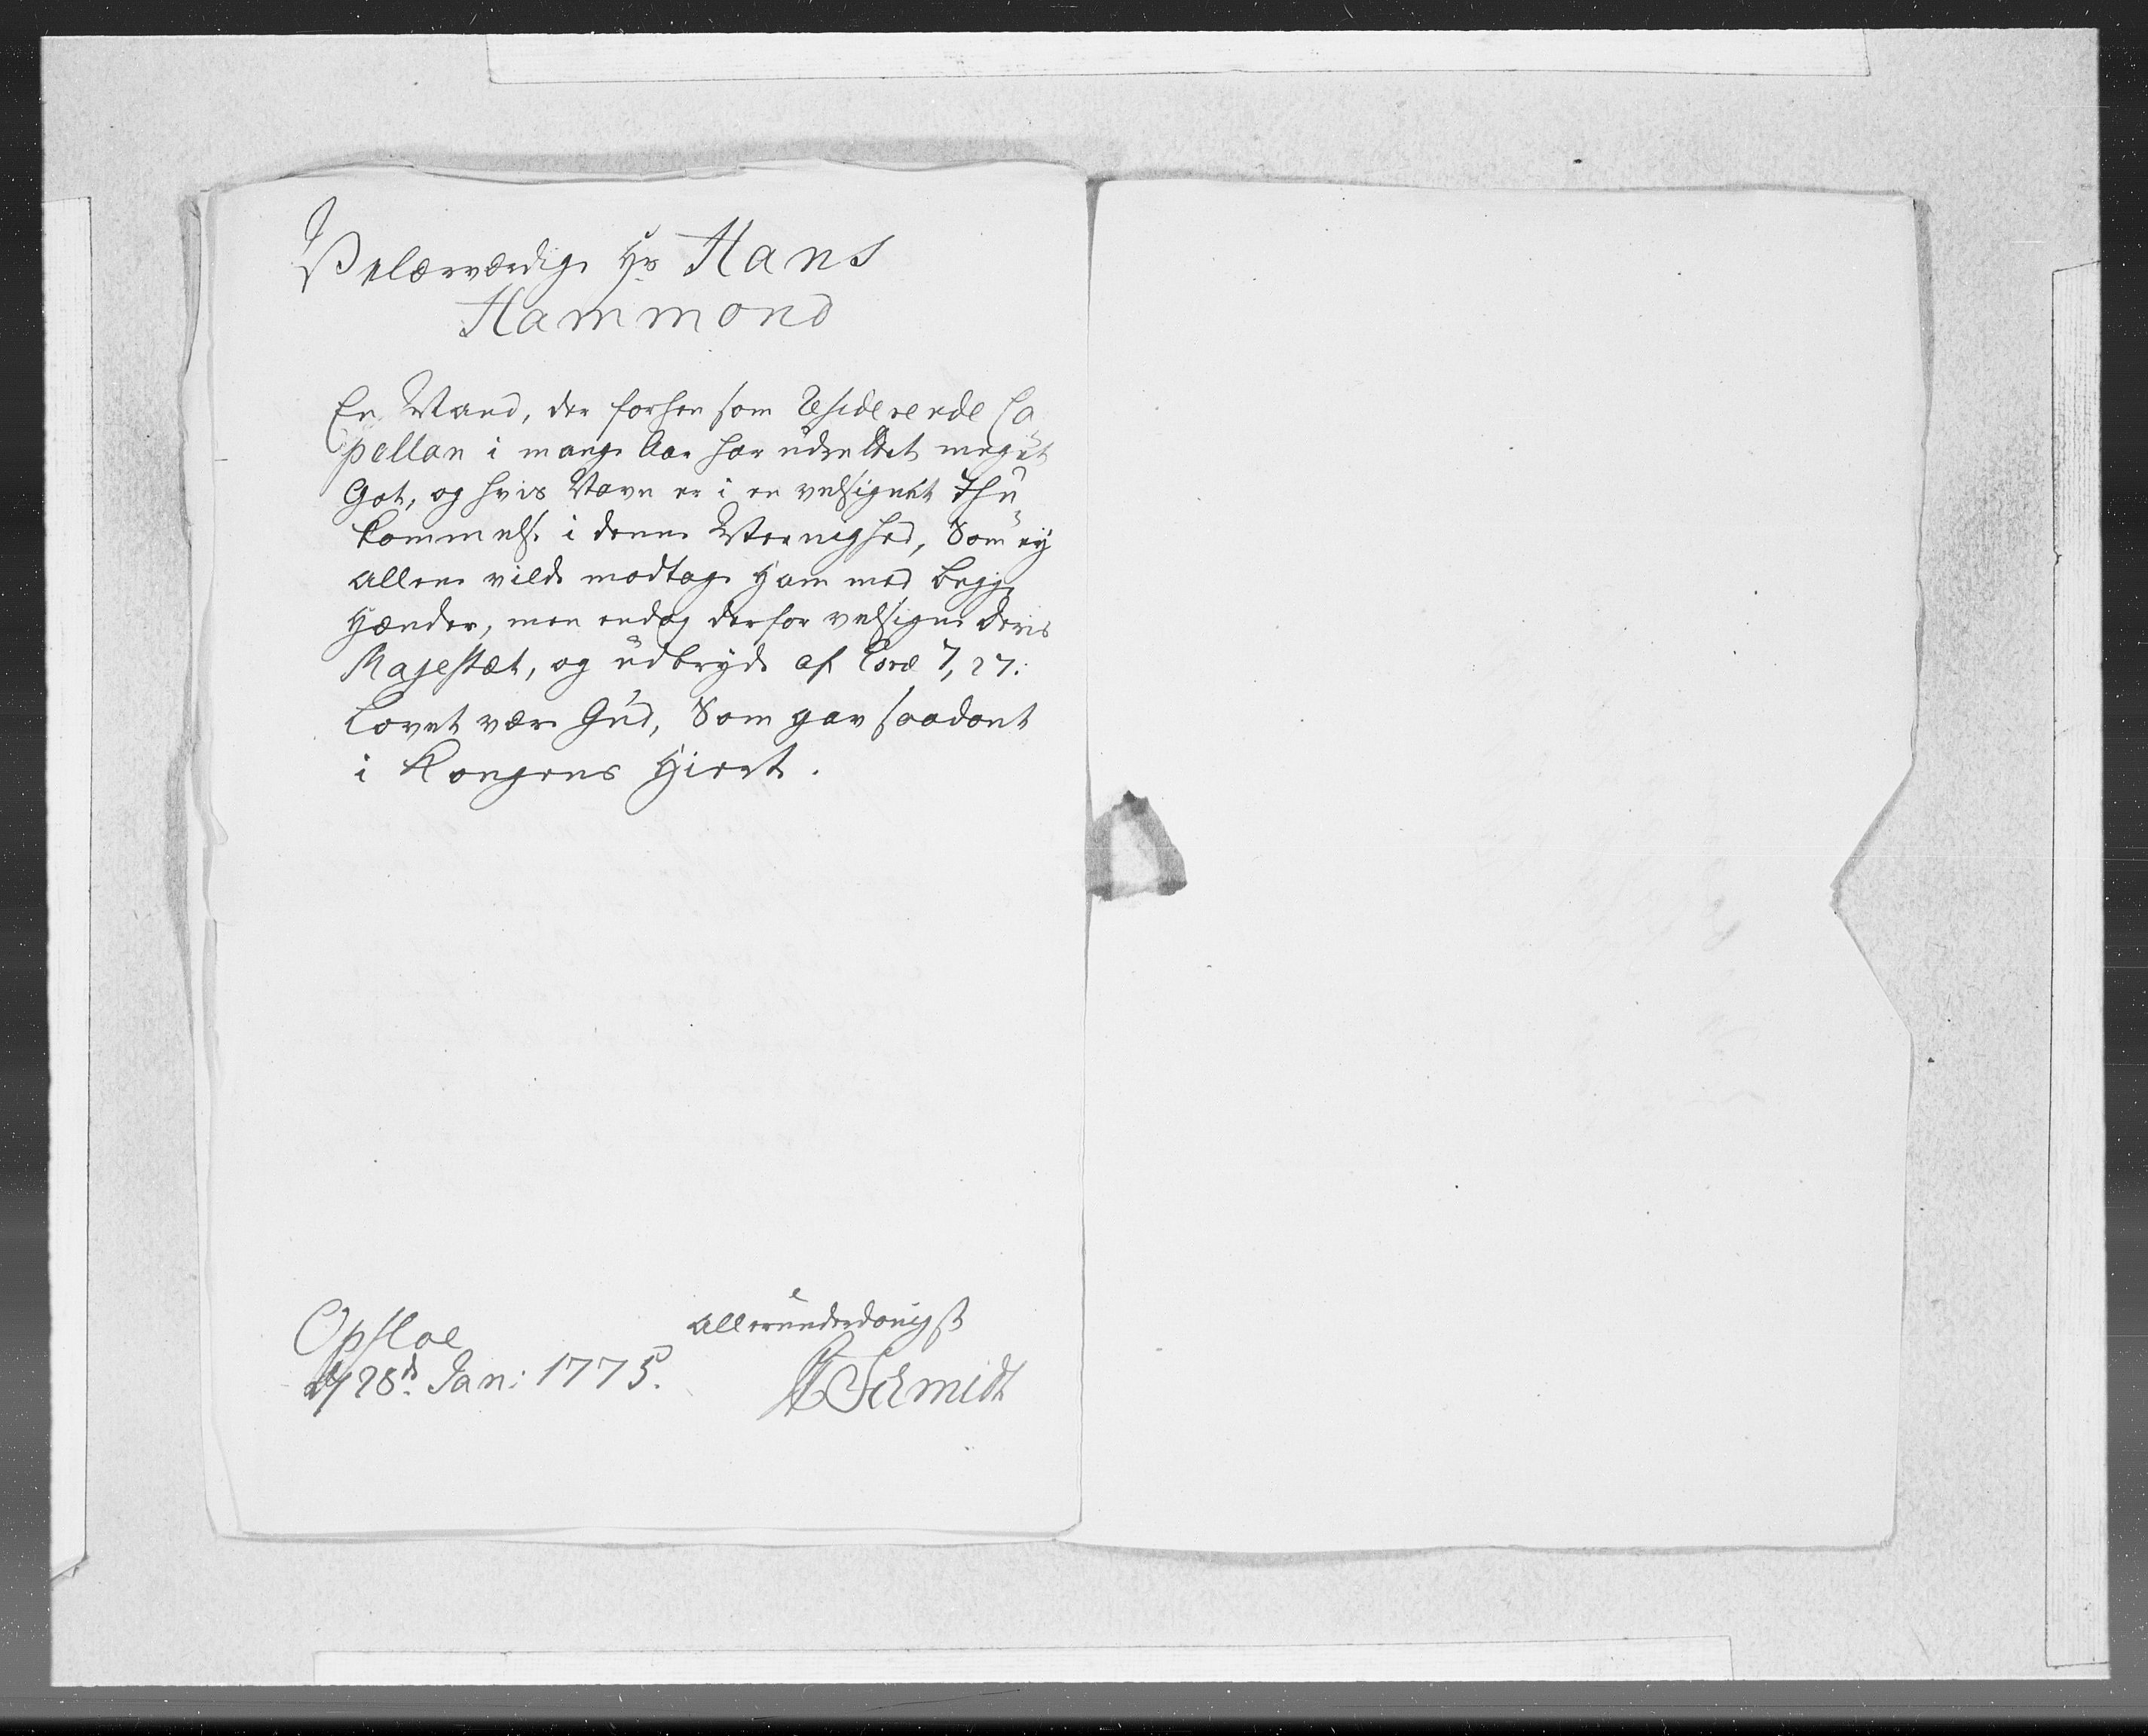 Velærværdige Hr Hans
Hammond
En Mand, der forhen som Residerende Ca-
pellan i mange Aar har udrettet meget
Got, og hvis Navn er i en velsignet Ihu-
kommelse i denne Meenighed, Som ey
alleene vilde modtage Ham med begge
Hænder, men endog derfor velsigne Deris
Majestæt, og udbryde af Esræ 7, 27:
Lovet være Gud, Som gav saadant
i Kongens Hierte.
Opsloe
28de Jan: 1775.
allerunderdanigst
Schmidt